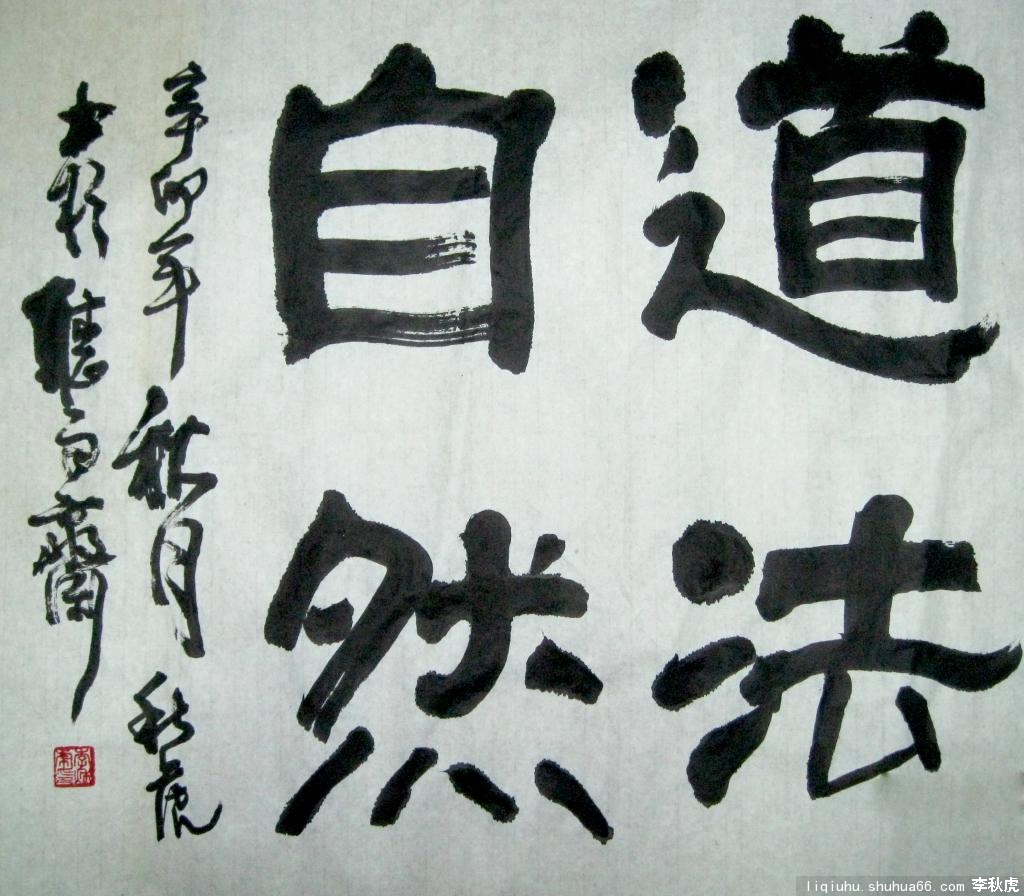 道法
自然
辛卯年秋月秋虎
书於聽雨齋
liqiuhu.shuhua66.com 李秋虎